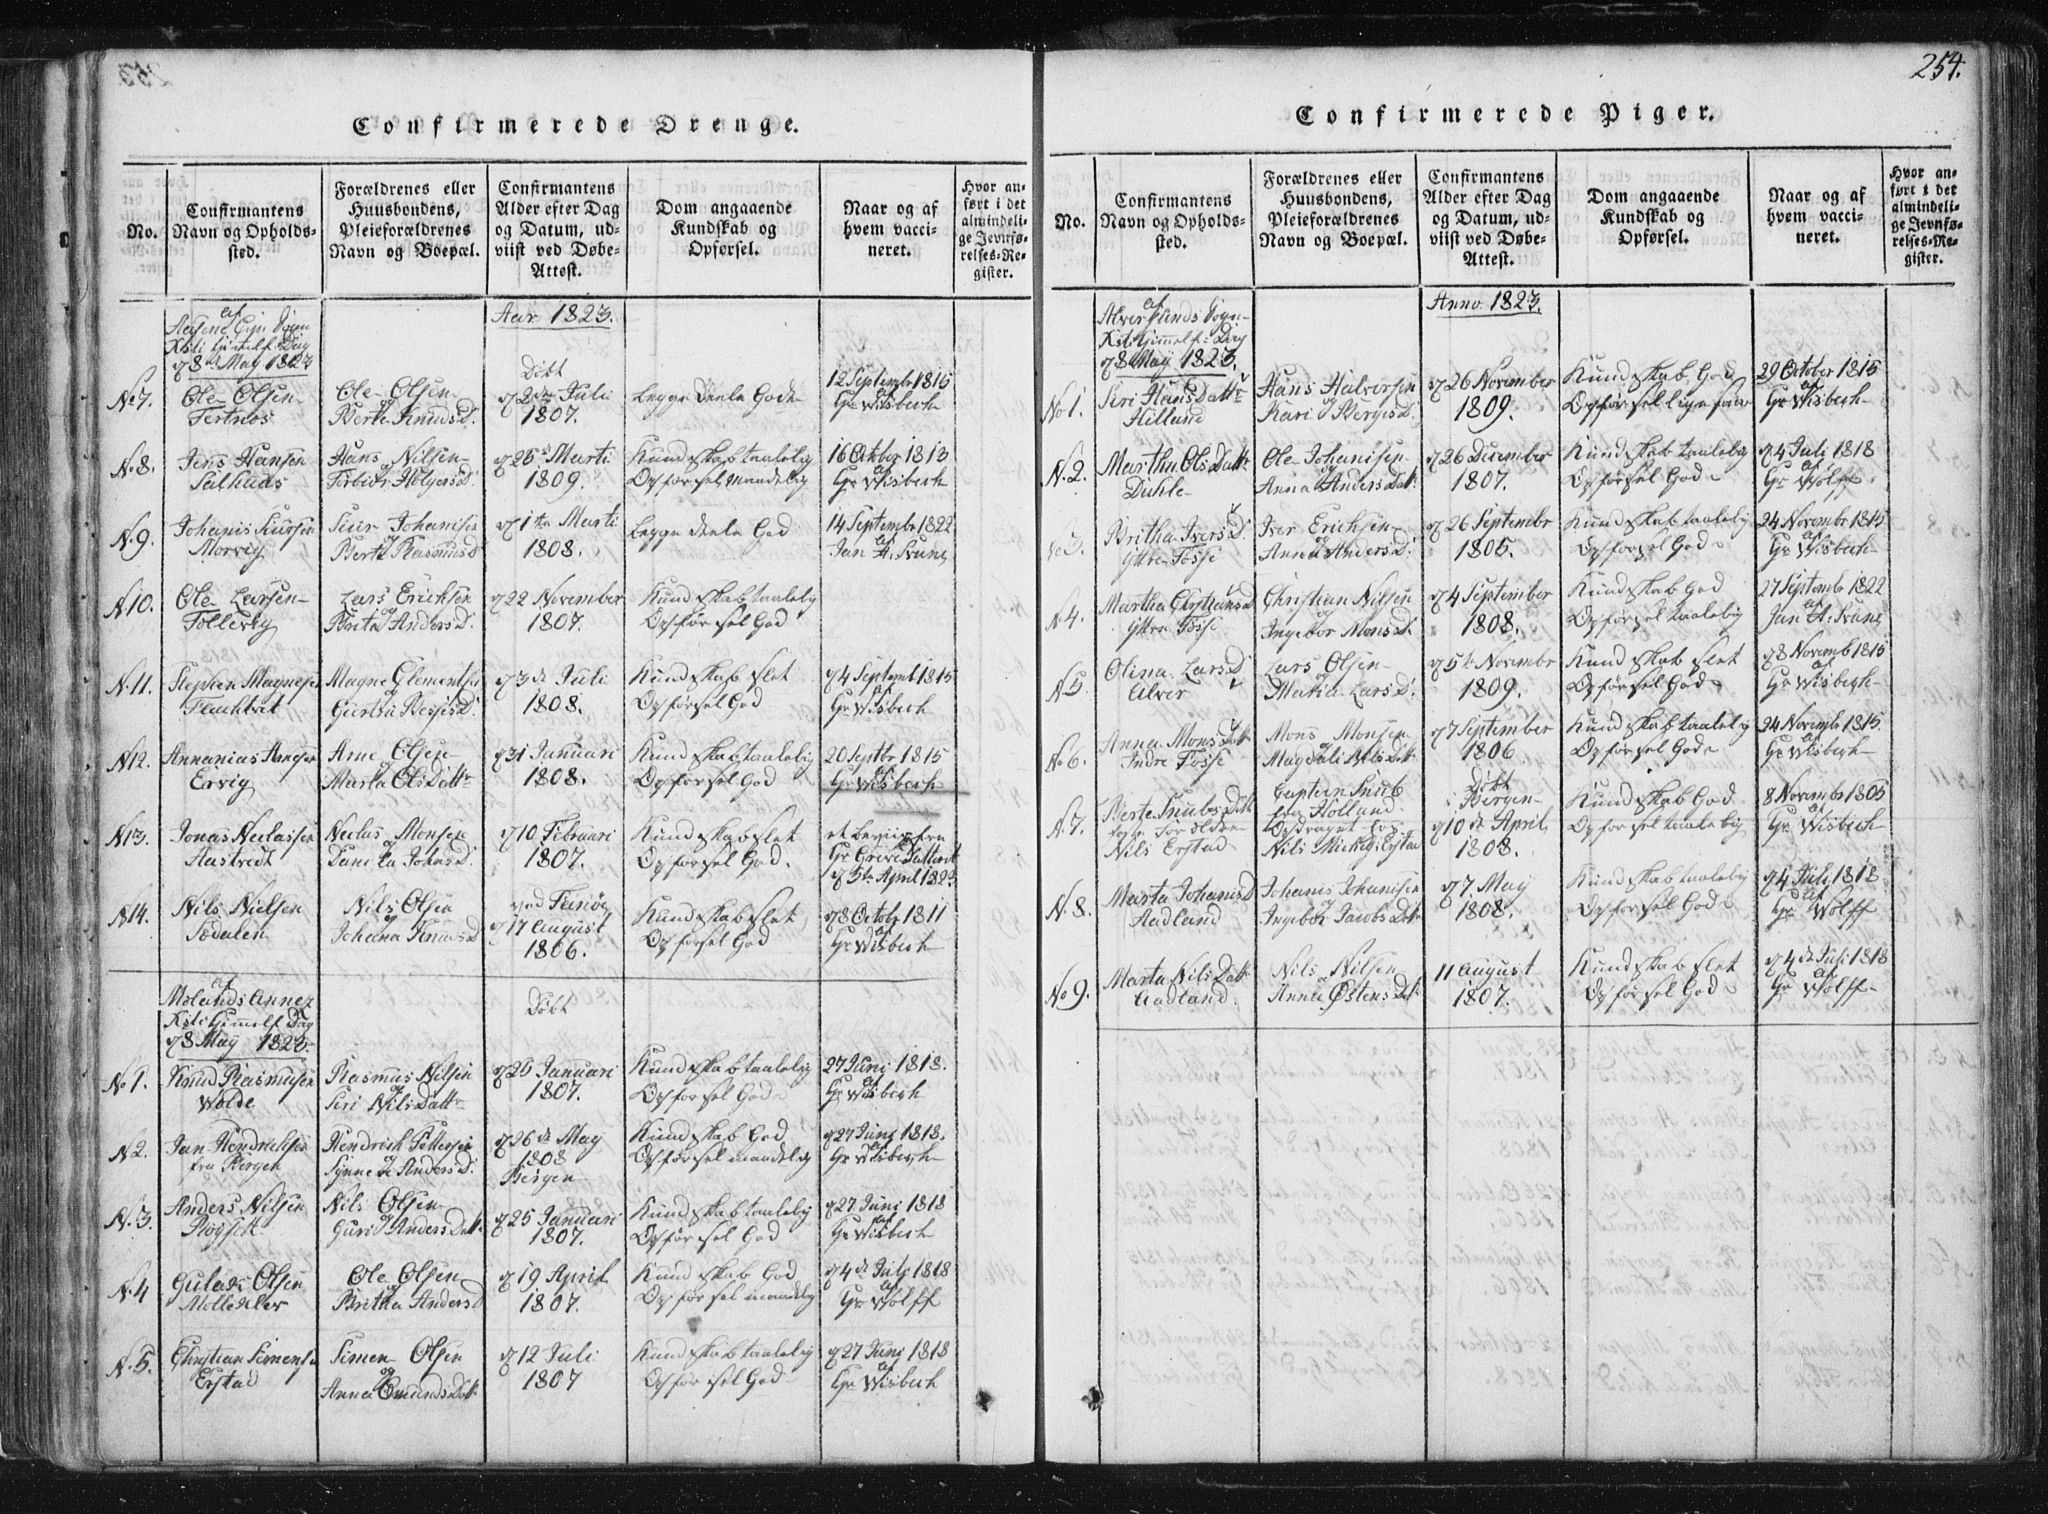 254.
Confirmerede Drenge.
No.
Confirmantens
Navn og Opholds-
sted.
Forældrenes eller
Huusbondens,
Pleieforældrenes
Navn og Boepæl.
Confirmantens
Alder efter Dag
og Datum, ud-
viist ved Døbe-
Attest.
Dom angaaende
Kundskab og
Opførsel.
Naar og af
hvem vacci-
neret.
Hvor an-
ført i det
almindeli-
ge Jevnfø-
relses-Re-
gister.
Aar 1823.
af
Ksti Himmelf: Dag
8de May 1823
No 7.
Ole Olsen
Tertnes
Ole Olsen
og
Berte Knuds D.
Døbt
2den Juli
1807.
begge Deele Gode
12 Septembr 1815
af
Hr Wisbech
N. 8.
Jens Hansen
Salhuus
Hans Nilsen
og
Holgers D.
25de Marti
1809.
Kundskab taalelig
Opførsel maadelig
16 October 1813
af
Hr Wisbech
N. 9.
Johanis Siursen
Morvig
Siur Johanisen
og
Berte Rasmus D
1ste Marti
1808.
begge Deele God
14 Septembr 1822
af
Jan A. Trane
N. 10.
Ole Larsen
Tollevig
Lars Erichsen
og
Brita Anders D.
22 November
1807.
Kundskab taalelig
Opførsel God
N. 11.
Stephen Magnesen
Flachtvet
Magne Clementsen
og
3de Juli
1808.
Kundskab slet
Opførsel God
4 Septemb 1815
af
Hr Wisbech
N 12.
Annanias Arnesen
Ervig
Arne Olsen
og
Marta Ols Datter
31 Januari
1808.
Kundskab taalelig
Opførsel God
20 Septbr 1815
af
Hr Wisbech
N 13.
Jonas Neclassen
Aastvedt
Neclas Monsen
og
10 Februari
1807.
Kundskab slet
Opførsel God.
et beviis fra
5te April 1823
N. 14.
Nils Nielsen
Sædalen
Nils Olsen
og
Johana Knuds D
17 August
1806.
Kundskab slet
Opførsel God
8 Octobr 1811
af
Hr Wisbech
af
Mølands Annex
Ksti Himmelf Dag
8 May 1823
Døbt
No 1.
Knud Rasmusen
Wolde
Rasmus Nilsen
og
Siri Nils Datter
25 Januari
1807.
Kundskab taalelig
Opførsel God
27 Juni 1818.
af
Hr Wisbech
N 2.
Jan Hendrichsen
fra Bergen
Hendrich Pettersen
og
Synneve Anders D.
26de May
1808
Bergen
Kundskab God
Opførsel maadelig
27 Juni 1818.
af
Hr Wisbech
N. 3.
Anders Nilsen
Nils Olsen
og
Guri Anders Datt.
25 Januari
1807.
Kundskab taalelig
Opførsel God
27 Juni 1818
af
Hr Wisbech
N. 4
Olsen
Ole Olsen
og
Britha Anders D
19 April
1807.
Kundskab God
Opførsel maadelig
4de July 1818
af
Hr Wolff
N. 5.
Christian Simens.
Erstad
Simen Olsen
og
Anna Omunds Dat.
12 Juli
1807
Kundskab taalelig
Opførsel God
27 Juni 1818
af
Hr Wisbech
Confirmerede Piger.
No.
Confirmantens
Navn og Opholds-
sted.
Forældrenes eller
Huusbondens,
Pleieforældrenes
Navn og Boepæl.
Confirmantens
Alder efter Dag
og Datum, ud-
viist ved Døbe-
Attest.
Dom angaaende
Kundskab og
Opførsel.
Naar og af
hvem vacci-
neret.
Hvor an-
ført i det
almindeli-
ge Jevnfø-
relses-Re-
gister.
Anno 1823.
af
Alverstunds Sogn
Kst: Himmelf: Dag
8 May 1823.
No 1.
Siri Hans Datter
Hilland
Hans Halversen
og
Kari Børges D.
26 November
1809.
Kundskab God
29 October 1815
af
Hr Wisbech
N. 2.
Martha Ols Datter
Dichle
Ole Johanisen
og
Anna Anders Dat.
26 December
1807.
Kundskab taalelig
Opførsel God
4 Juli 1818
af
Hr Wolff
No 3.
Britha Ivers D.
Yttre Fosse
Iver Erichsen
og
Anna Anders D.
26 Septembr
1805.
Kundskab taalelig
Opførsel God
24 Novembr 1815
af
Hr Wisbech
N. 4.
Martha Christians D
Yttre Fosse
Christian Nilsen
og
Ingebor Mons D.
4 September
1808.
Kundskab God
Opførsel taalelig
27 Septembr 1822
af
Jan A. Trane
N. 5
Olina Lars D
Alver
Lars Olsen
og
Matia Lars D.
5te Novembr
1809.
Kundskab slet
Opførsel God
8 Novemb 1815
af
Hr Wisbech
No 6.
Anna Mons Datt
Indre Fosse
Mons Monsen
og
Magdali Nils Dat.
7 September
1806.
Kundskab taalelig
Opførsel God
24 Novembr 1815
af
Hr Wisbech
N. 7.
Nils Erstad
Captein
fra Holland.
Opdraget hos
Nils Erstad
Døbt
i Bergen
10de April
1808.
Kundskab God
Opførsel taalelig
8 Novembr 1805
af
Hr Wisbech
N. 8.
Marta Johanis D
Aadland
Johanis Johanisen
og
Ingebor Jacobs Dat.
7 May
1808.
Kundskab taalelig
Opførsel God
4 Juli 1818
af
Hr Wolff
No 9.
Marta Nils Datt
Aadland.
Nils Nilsen
og
Anna Østens Dat.
11 August
1807.
Kundskab slet
Opførsel God
4de Juli 1818
af
Hr Wolff